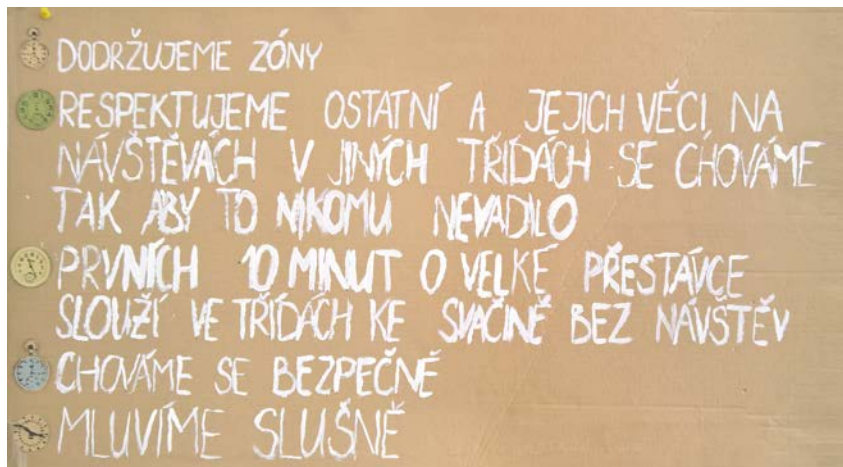 DODRŽUJEME ZÓNY
RESPEKTUJEME OSTATNÍ A JEJICH VĚCI NA
NÁVŠTĚVÁCH V JINÝCH TŘÍDÁCH SE CHOVÁME
TAK ABY TO NIKOMU NEVADILO
PRVNÍCH 10 MINUT O VELKÉ PŘESTÁVCE
SLOUŽÍ VE TŘÍDÁCH KE SVAČINĚ BEZ NÁVŠTĚV
CHOVÁME SE BEZPEČNĚ
MLUVÍME SLUŠNĚ